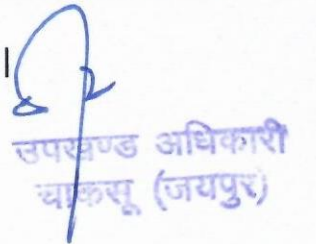 ।
उपखण्ड अधिकारी
चाकसू (जयपुर)